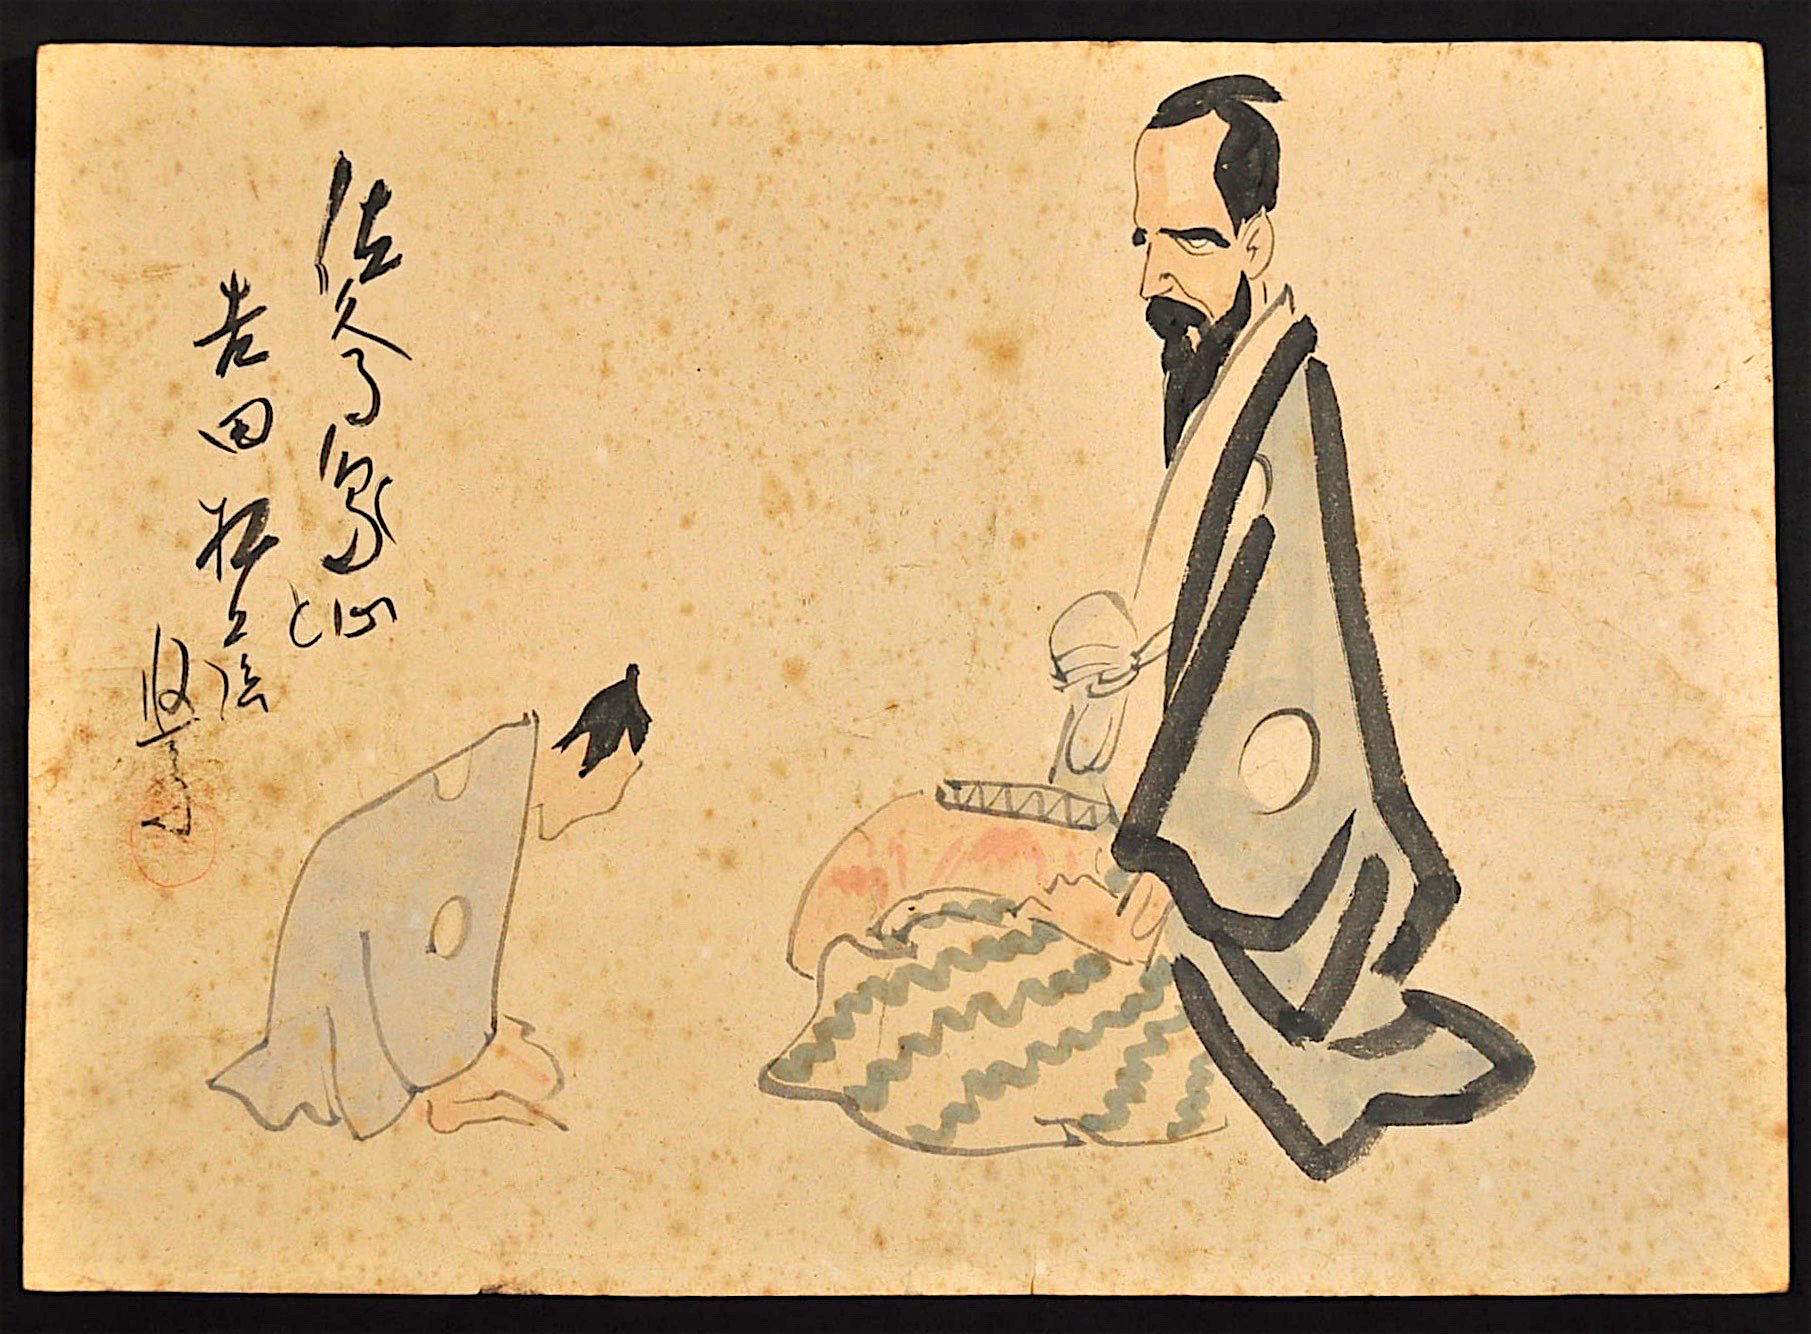 佐久间象山と
吉田松陰